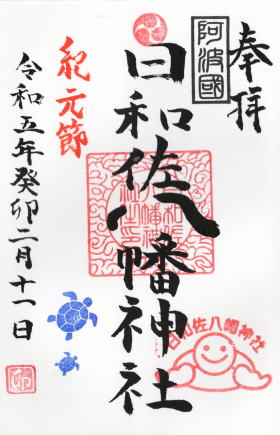 奉拝
阿波國
日和佐八幡神社
紀元節
令和五年癸卯二月十一日
卯
日和佐八幡神社